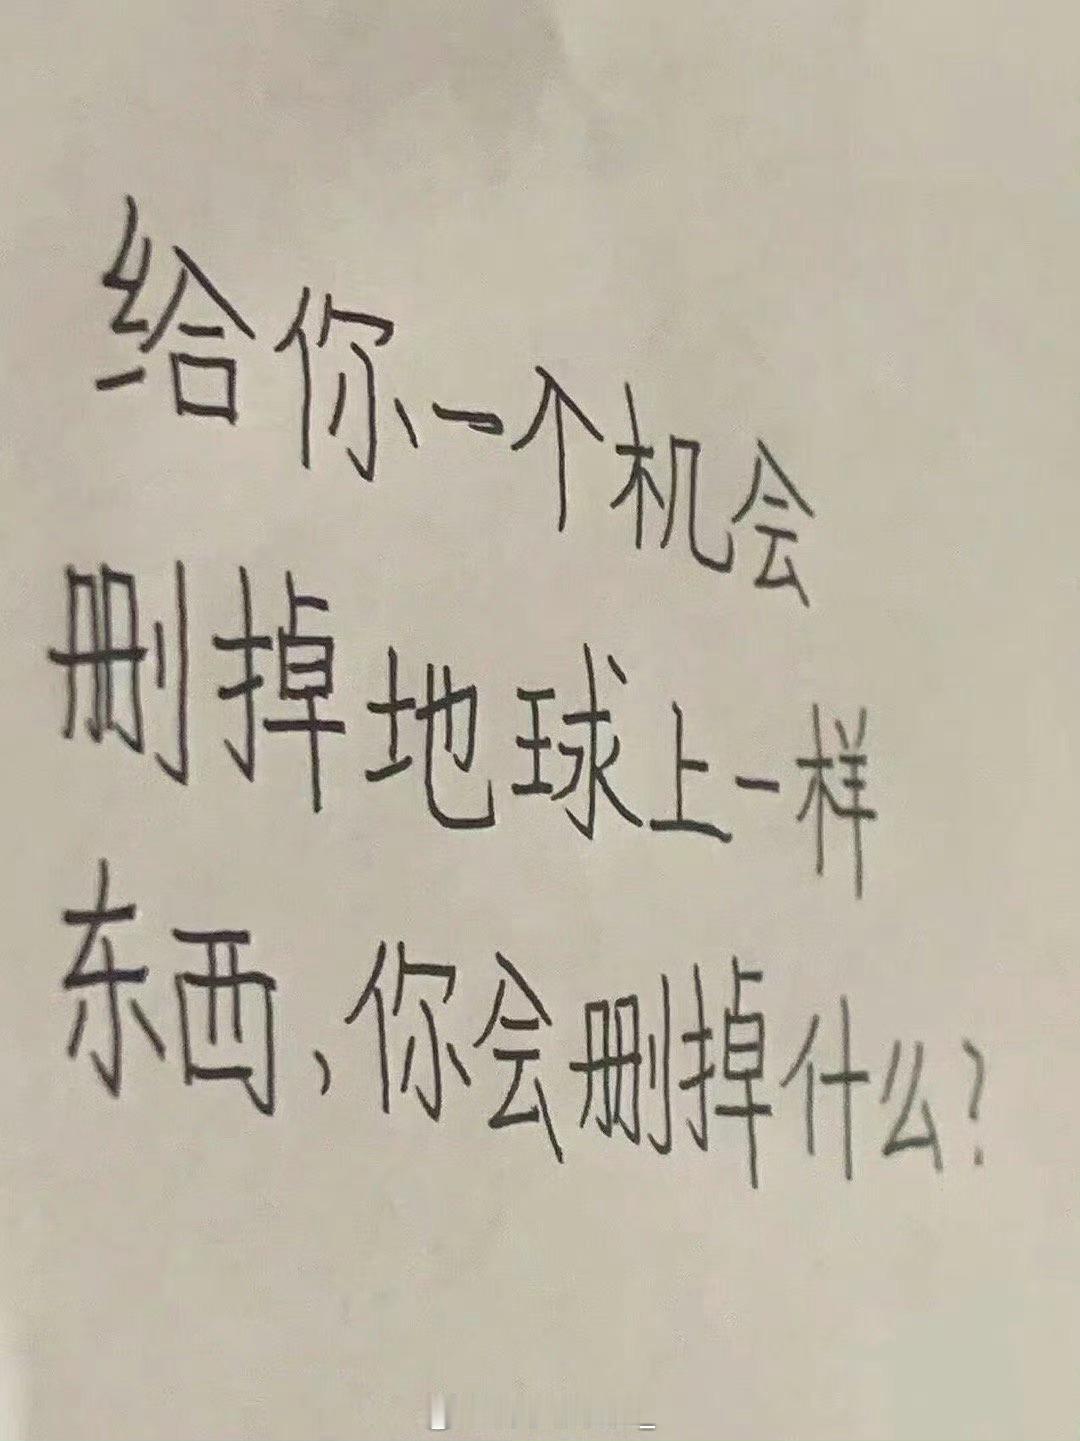 给你一个机会
删掉地球上一样
东西,你会删掉什么?